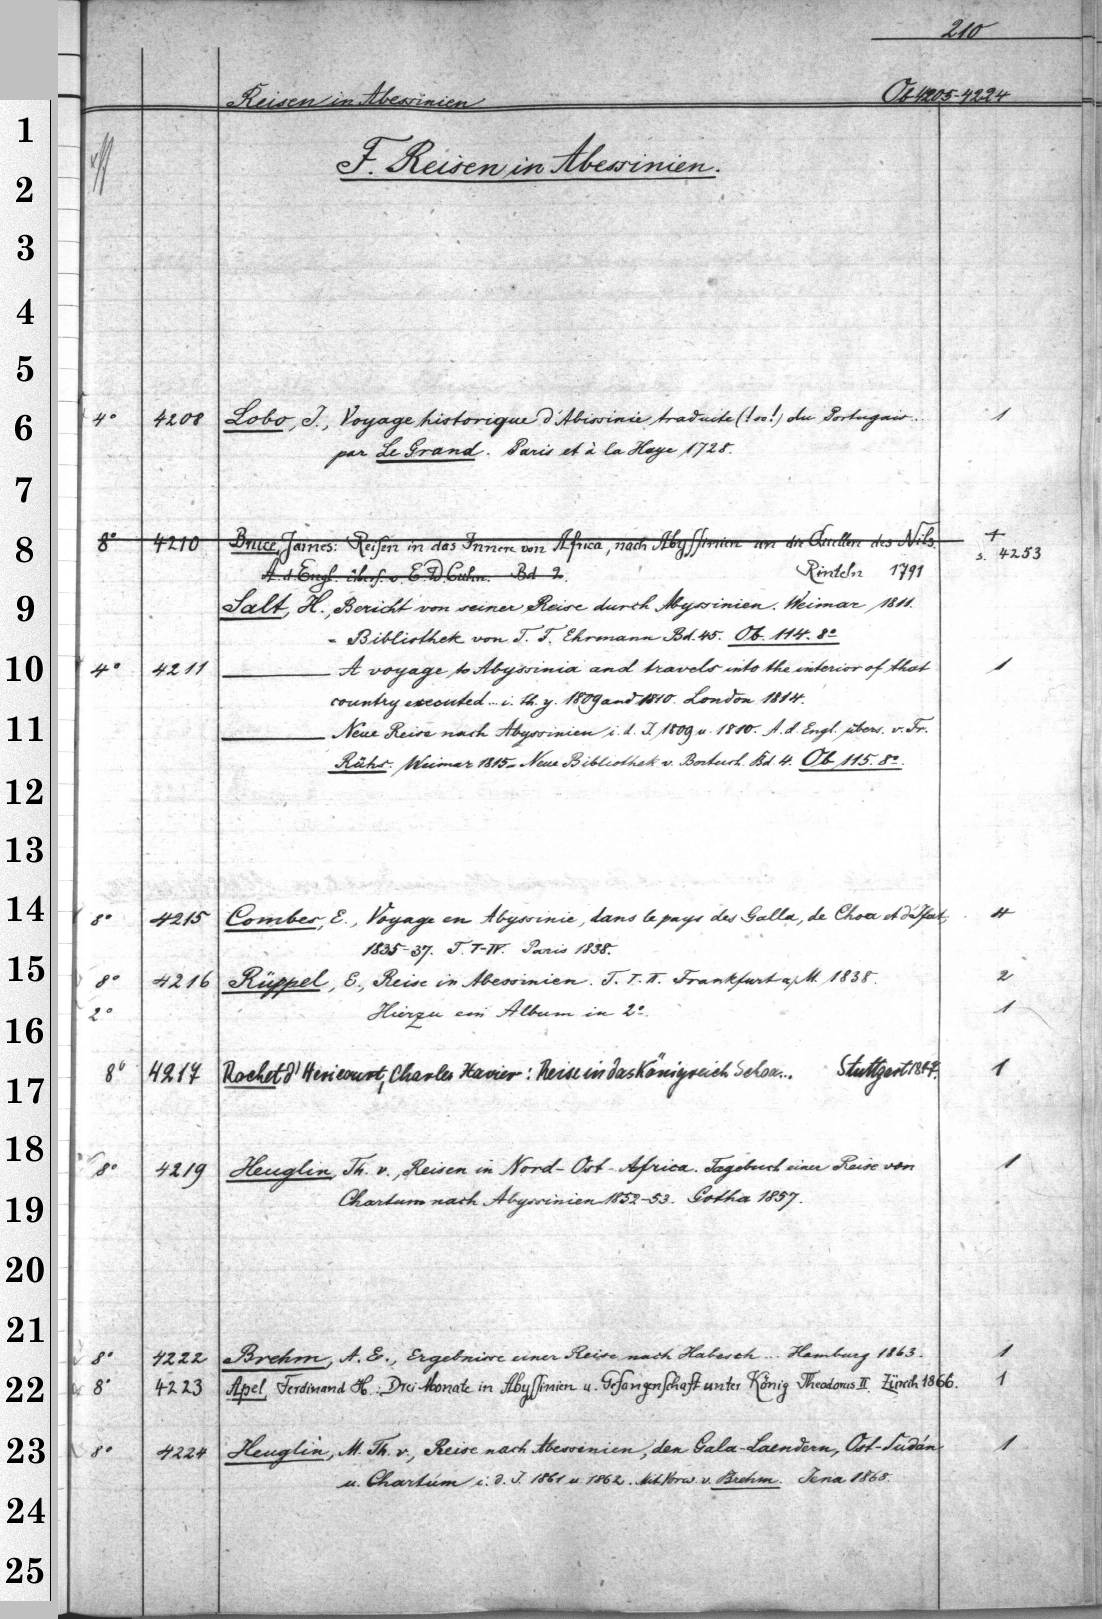 210
Reisen in Abessinien Ob 4205-4224
1
F. Reisen in Abessinien.
2
3
4
5
6 4° 4208 Lobo, J., Voyage historique d'Abissinie traduite (!oo!) du Portugais... 1
par Le Grand. Paris et à la Haye 1728.
7
8 8° 4210 Bruce, James: Reisen in das Innere von Africa, nach Abyssinien an die Quellen des Nils. +
A. d. Engl. übers. v. E. W. Cuhn. Bd 2. Rinteln 1791 s. 4253
9 Salt, H., Bericht von seiner Reise durch Abyssinien. Weimar 1811.
= Bibliothek von T. F. Ehrmann Bd. 45. Ob. 114. 8°
10 4° 4211 ——— A voyage to Abyssinia and travels into the interior of that 1
country executed... i. th. y. 1809 and 1810. London 1814.
11 ——— Neue Reise nach Abyssinien i. d. J. 1809 u. 1810. A. d. Engl. übers. v. Fr.
Rühs. Weimar 1815 = Neue Bibliothek v. Bertuch. Bd. 4. Ob 115. 8°.
12
13
14 8° 4215 Combes, E., Voyage en Abyssinie, dans le pays des Galla, de Choa et d'Ifat, 4
1835-37. T. I-IV. Paris 1838.
15 8° 4216 Rüppel, E., Reise in Abessinien. T. I. II. Frankfurt a/M. 1838. 2
16 2° Hierzu ein Album in 2°. 1
17 8° 4217 Rochet d'Héricourt, Charles Xavier: Reise in das Königreich Schoa... Stuttgart 1847. 1
18 8° 4219 Heuglin, Th. v., Reisen in Nord-Ost-Africa. Tagebuch einer Reise von 1
19 Chartum nach Abyssinien 1852-53. Gotha 1857.
20
21
8° 4222 Brehm, A. E., Ergebnisse einer Reise nach Habesch... Hamburg 1863. 1
22 8° 4223 Apel Ferdinand H.: Drei Monate in Abyssinien u. Gefangenschaft unter König Theodorus II. Zürich 1866. 1
23 8° 4224 Heuglin, M. Th. v., Reise nach Abessinien, den Gala-Laendern, Ost-Sudán 1
u. Chartúm i. d. J. 1861 u. 1862. Mit Vorw. v. Brehm. Jena 1868.
24
25